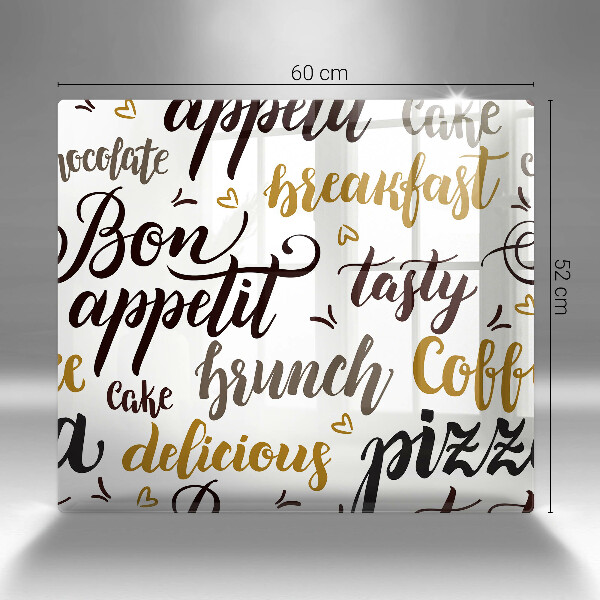 60 cm
appetit Cake
hocolate
breakfast
Bon
appetit
tasty
52 cm
brunch
Coff
Cake
delicious
pizz